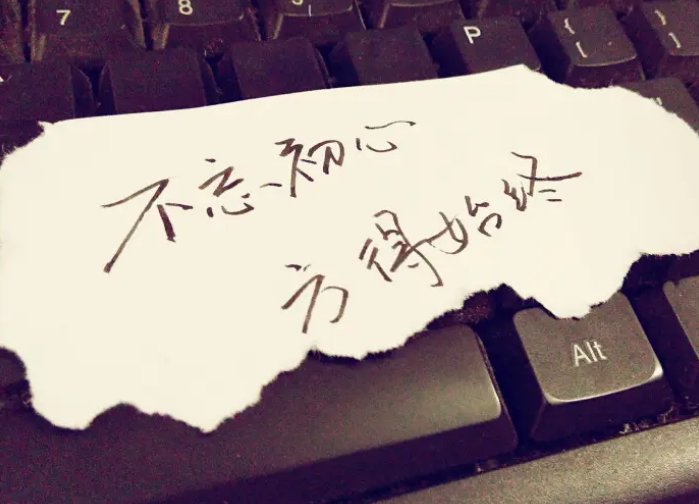 7 8
P { [ } ]
不忘初心
方得始终
Alt